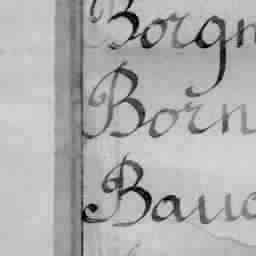 Borgn
Born
Bauc